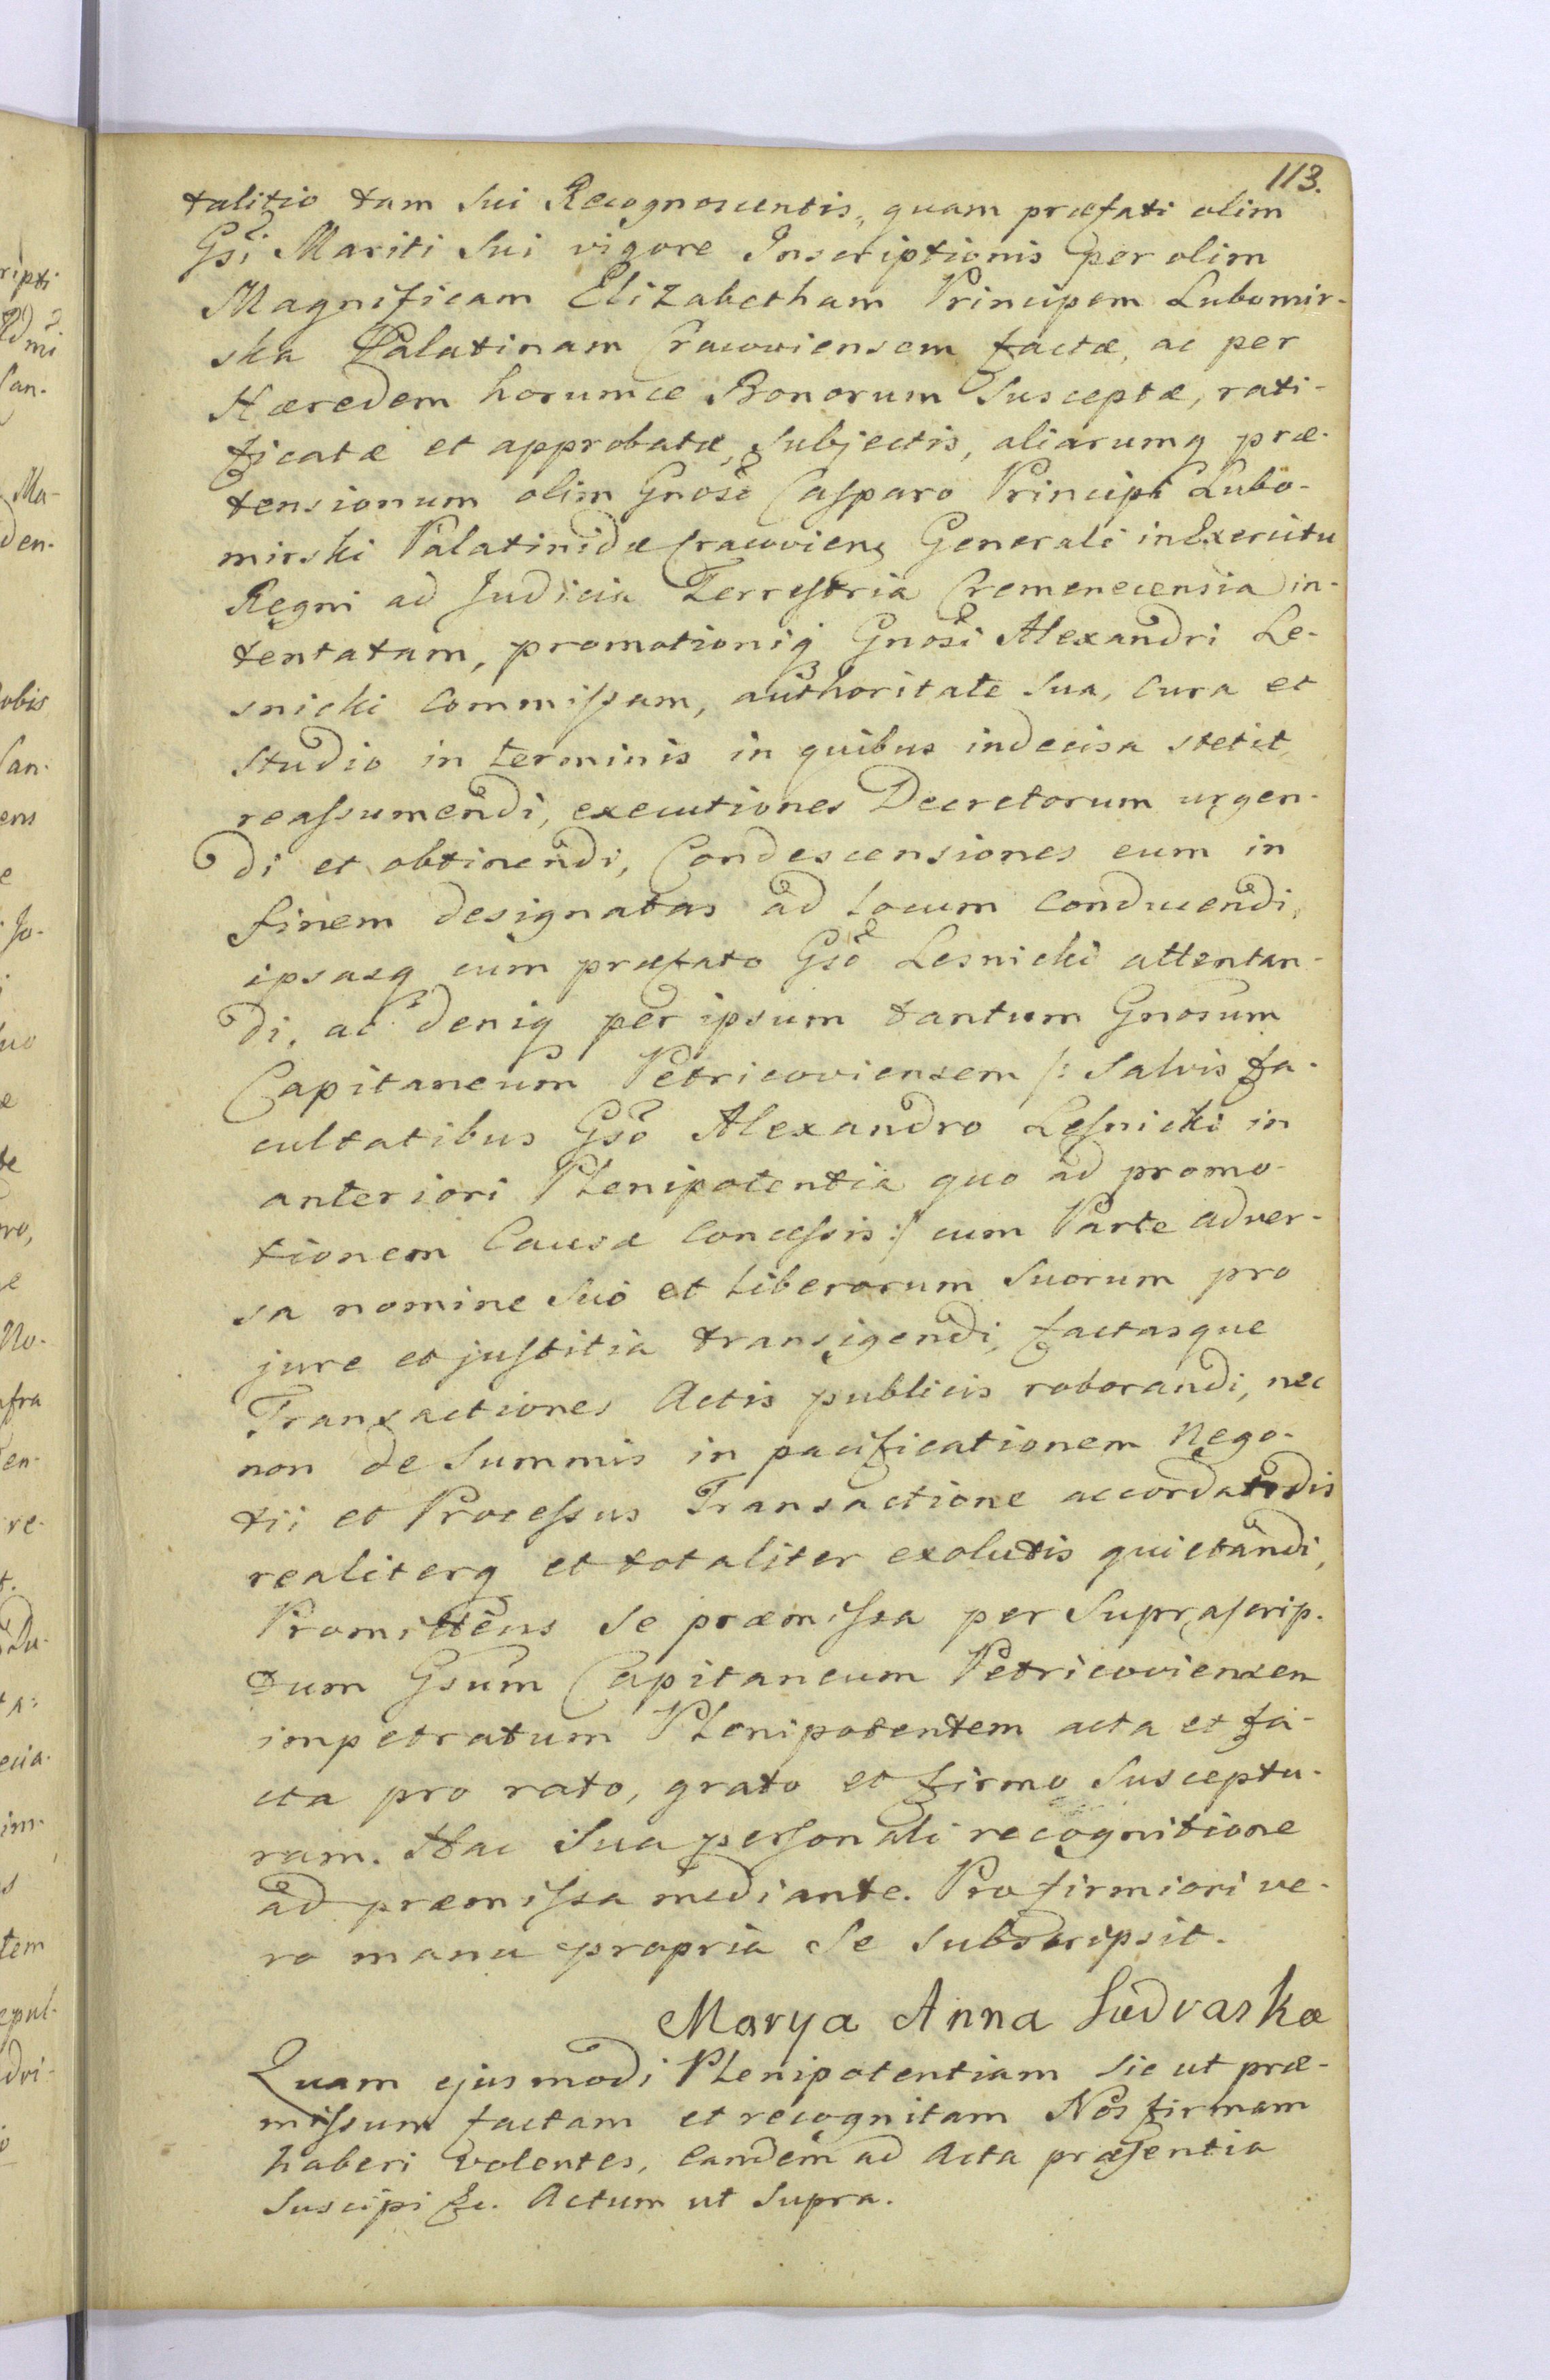 113.
talitio tam sui Recognoscentis, quam præfati olim
Gsi Mariti sui vigore Inscriptionis per olim
Magnificam Elizabetham Principem Lubomir-
ska Palatinam Cracoviensem factæ, ac per
Hæredem horumce Bonorum susceptæ, rati-
ficatæ et approbatæ, subjectis, aliarumq præ-
tensionum olim Gnoso Casparo Principi Lubo-
mirski Palatinidæ Cracoviens Generali in Exercitu
Regni ad Judicia Terrestria Cremenecensia in-
tentatam, promotioniq Gnosi Alexandri Le-
snicki commissam, authoritate sua, cura et
studio in terminis in quibus indecisa stetit,
reassumendi, executiones Decretorum urgen-
di et obtinendi, Condescensiones eum in
finem designatas ad locum conducendi,
ipsasq cum præfato Gso Lesnicki attentan-
di, ac deniq per ipsum tantum Gnosum
Capitaneum Petricoviensem /: salvis fa-
cultatibus Gso Alexandro Lesnicki in
anteriori Plenipotentia quo ad promo-
tionem Causæ concessis :/ cum Parte adver-
sa nomine suo et liberorum suorum pro
jure et justitia transigendi, factasque
Transactiones Actis publicis roborandi, nec
non de summis in pacificationem Nego-
tii et Processus Transactione accordandis
realiterq et totaliter exolutis quietandi,
Promittens se præmissa per suprascrip-
tum Gsum Capitaneum Petricoviensem
impetratum Plenipotentem acta et fa-
cta pro rato, grato et firmo susceptu-
ram. Hac sua personali recognitione
ad præmissa mediante. Pro firmiori ve-
ro manu propria se subscripsit.
Marya Anna
Quam ejusmodi Plenipotentiam sic ut præ-
missum factam et recognitam Nos firmam
haberi volentes, eamdem ad Acta præsentia
suscipi &c. Actum ut supra.